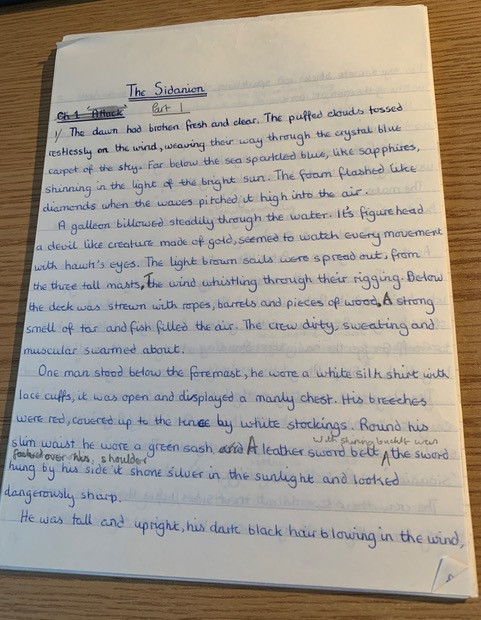 The Sidanion
Ch 1 Attack Part 1
1/ The dawn had broken fresh and clear. The puffed clouds tossed
restlessly on the wind, weaving their way through the crystal blue
carpet of the sky. Far below the sea sparkled blue, like sapphires,
shinning in the light of the bright sun. The foam flashed like
diamonds when the waves pitched it high into the air.
A galleon billowed steadily through the water. It's figurehead
a devil like creature made of gold, seemed to watch every movement
with hawk's eyes. The light brown sails were spread out, from
the three tall masts, The wind whistling through their rigging. Below
the deck was strewn with ropes, barrels and pieces of wood, A strong
smell of tar and fish filled the air. The crew dirty, sweating and
muscular swarmed about.
One man stood below the foremast, he wore a white silk shirt with
lace cuffs, it was open and displayed a manly chest. His breeches
were red, covered up to the knee by white stockings. Round his
with shining buckle was
slim waist he wore a green sash and A leather sword belt, the sword
over his shoulder
hung by his side it shone silver in the sunlight and looked
dangerously sharp.
He was tall and upright, his dark black hair blowing in the wind,